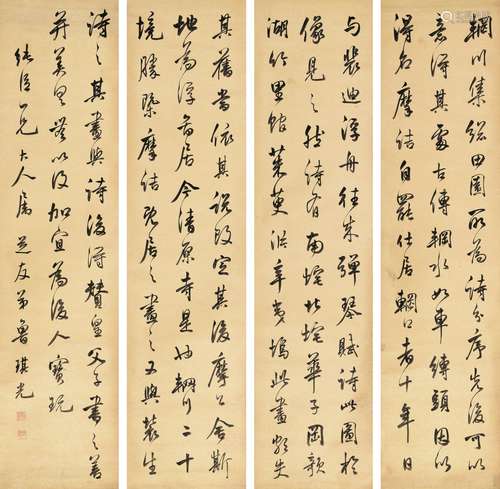 輞川集總田園所為詩分序先後可以
意得其處古傳輞水如車縛頭因以
得名摩詰自罷仕居輞口者十年日
與裴迪浮舟往來彈琴賦詩此圖想
像見之然詩有南垞北垞華子岡欹
湖竹里館茱萸沜辛夷塢此畫頗失
其舊當依其說改定其後摩詰舍斯
地為浮啚居今清源寺是也輞川二十
境勝槩摩詰既居之畫之又與裴生
詩之其畫與詩後得贊皇父子書之善
并美具無以復加宜為後人寶玩
臣一兄大人屬 芝友弟魯琪光